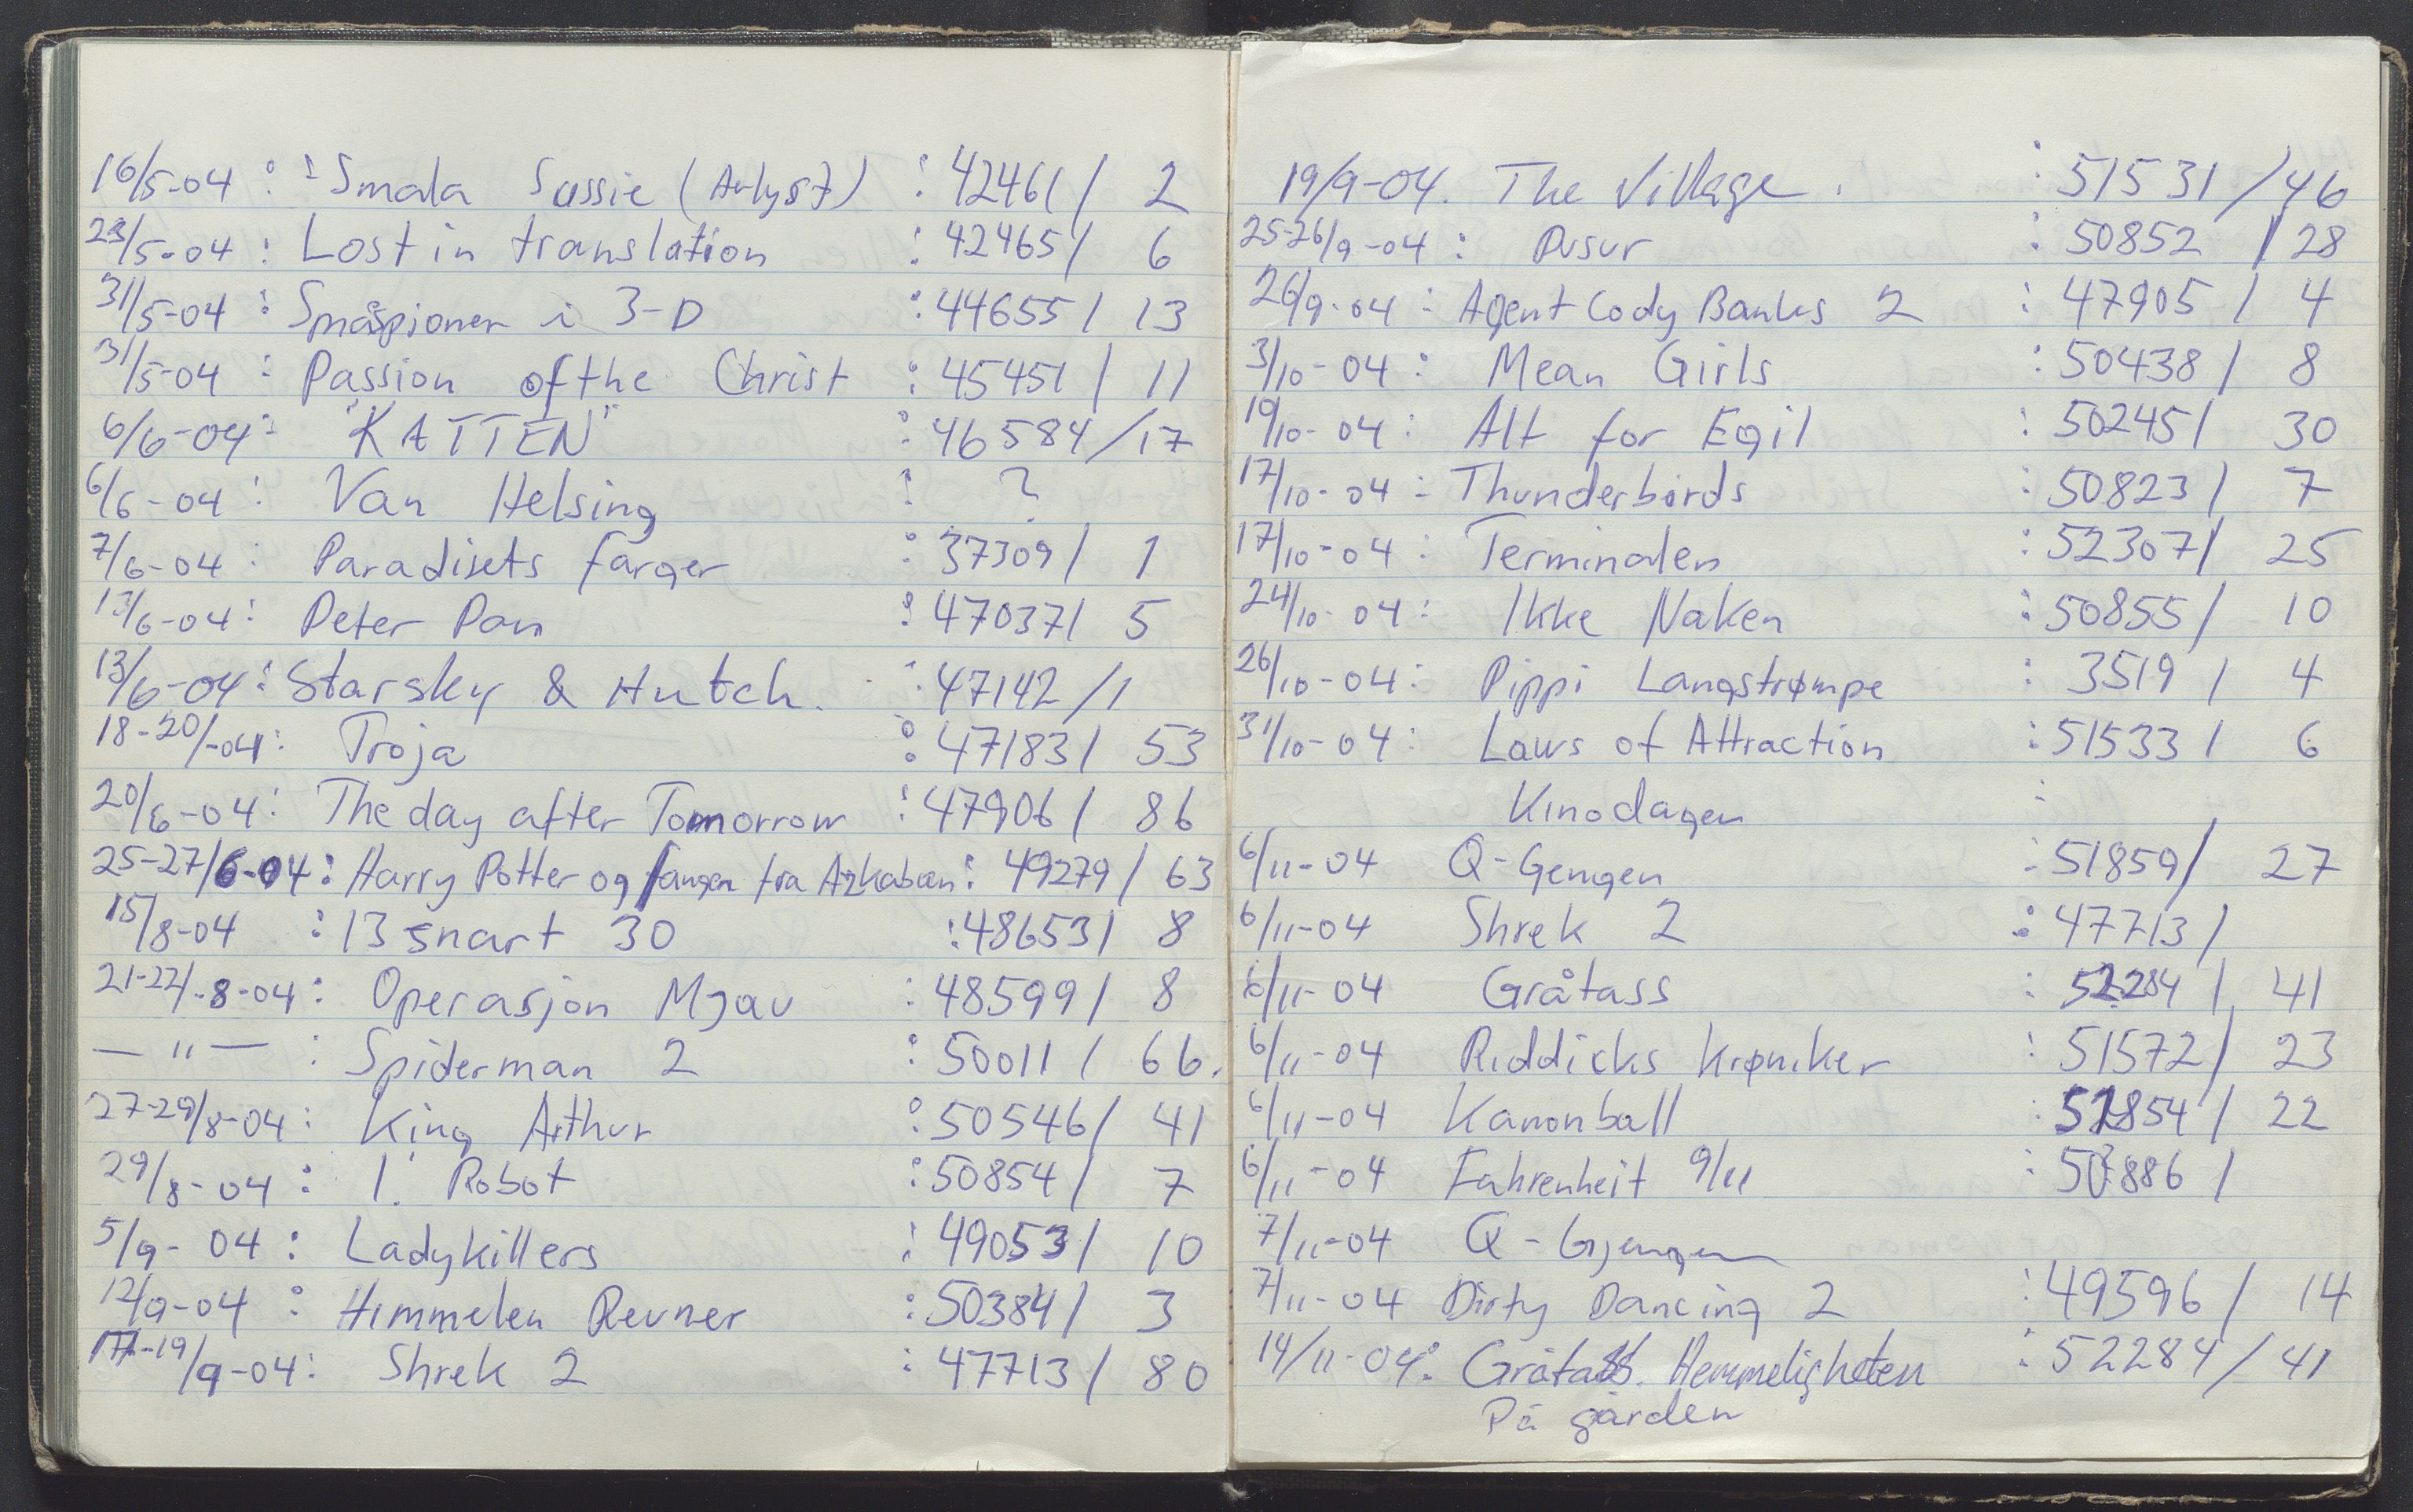 16/5-04 : Smala Sussie (Avlyst) : 42461 / 2
23/5-04 : Lost in translation : 42465 / 6
31/5-04 : Småspioner i 3-D : 44655 / 13
31/5-04 : Passion of the Christ : 45451 / 11
6/6-04 : "KATTEN" : 46584 / 17
6/6-04 : Van Helsing : ?
7/6-04 : Paradisets farger : 37309 / 1
13/6-04 : Peter Pan : 47037 / 5
13/6-04 : Starsky & Hutch. : 47142 / 1
18-20/-04 : Troja : 47183 / 53
20/6-04 : The day after Tomorrow : 47906 / 86
25-27/6-04 : Harry Potter og fangen fra Azkaban : 49279 / 63
15/8-04 : 13 snart 30 : 48653 / 8
21-22/-8-04 : Operasjon Mjau : 48599 / 8
— " — : Spiderman 2 : 50011 / 66.
27-29/8-04 : King Arthur : 50546 / 41
29/8-04 : I. Robot : 50854 / 7
5/9-04 : Ladykillers : 49053 / 10
12/9-04 : Himmelen Revner : 50384 / 3
17-19/9-04 : Shrek 2 : 47713 / 80
19/9-04. The Village. : 51531 / 46
25-26/9-04 : Pusur : 50852 / 28
26/9-04 : Agent Cody Banks 2 : 47905 / 4
3/10-04 : Mean Girls : 50438 / 8
10/10-04 : Alt for Egil : 50245 / 30
17/10-04 : Thunderbirds : 50823 / 7
17/10-04 : Terminalen : 52307 / 25
24/10-04 : Ikke Naken : 50855 / 10
26/10-04 : Pippi Langstrømpe : 3519 / 4
31/10-04 : Laws of Attraction : 51533 / 6
Kinodagen :
6/11-04 Q-Gengen : 51859 / 27
6/11-04 Shrek 2 : 47713 /
6/11-04 Gråtass : 52284 / 41
6/11-04 Riddicks krøniker : 51572 / 23
6/11-04 Kanonball : 51854 / 22
6/11-04 Fahrenheit 9/11 : /
7/11-04 Q-Gjengen
7/11-04 Dirty Dancing 2 : 49596 / 14
14/11-04 : Gråtass. Hemmeligheten : 52284 / 41
På gården